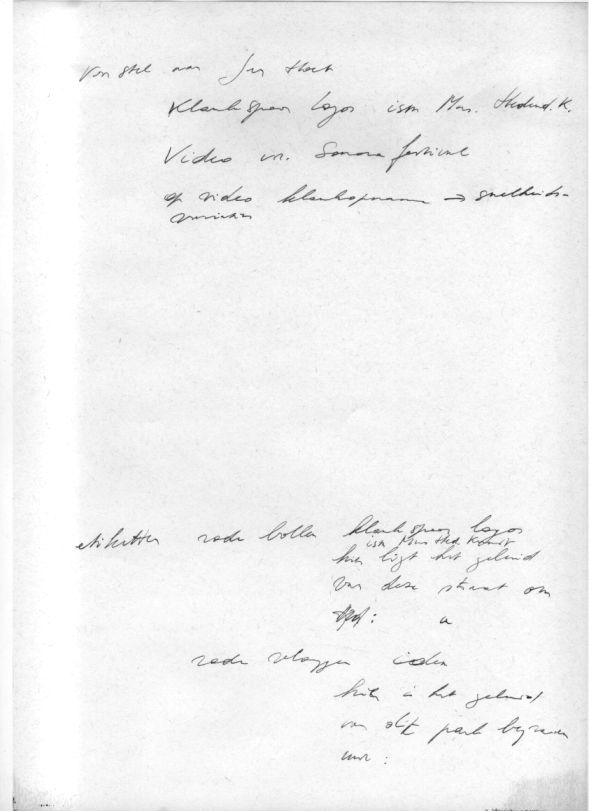 Voorstel aan Jan Hoet
Klankspoor Logos ism Mus. Hedend. K.
Video vr. Sonora festival
op video klankopname → snelheids-
variaties
etiketten rode bollen klankspoor logos
ism Mus Hed Kunst
hier ligt het geluid
van deze straat om
u
rode vlaggen idem
hier is het geluid
van dit park begraven
uur :